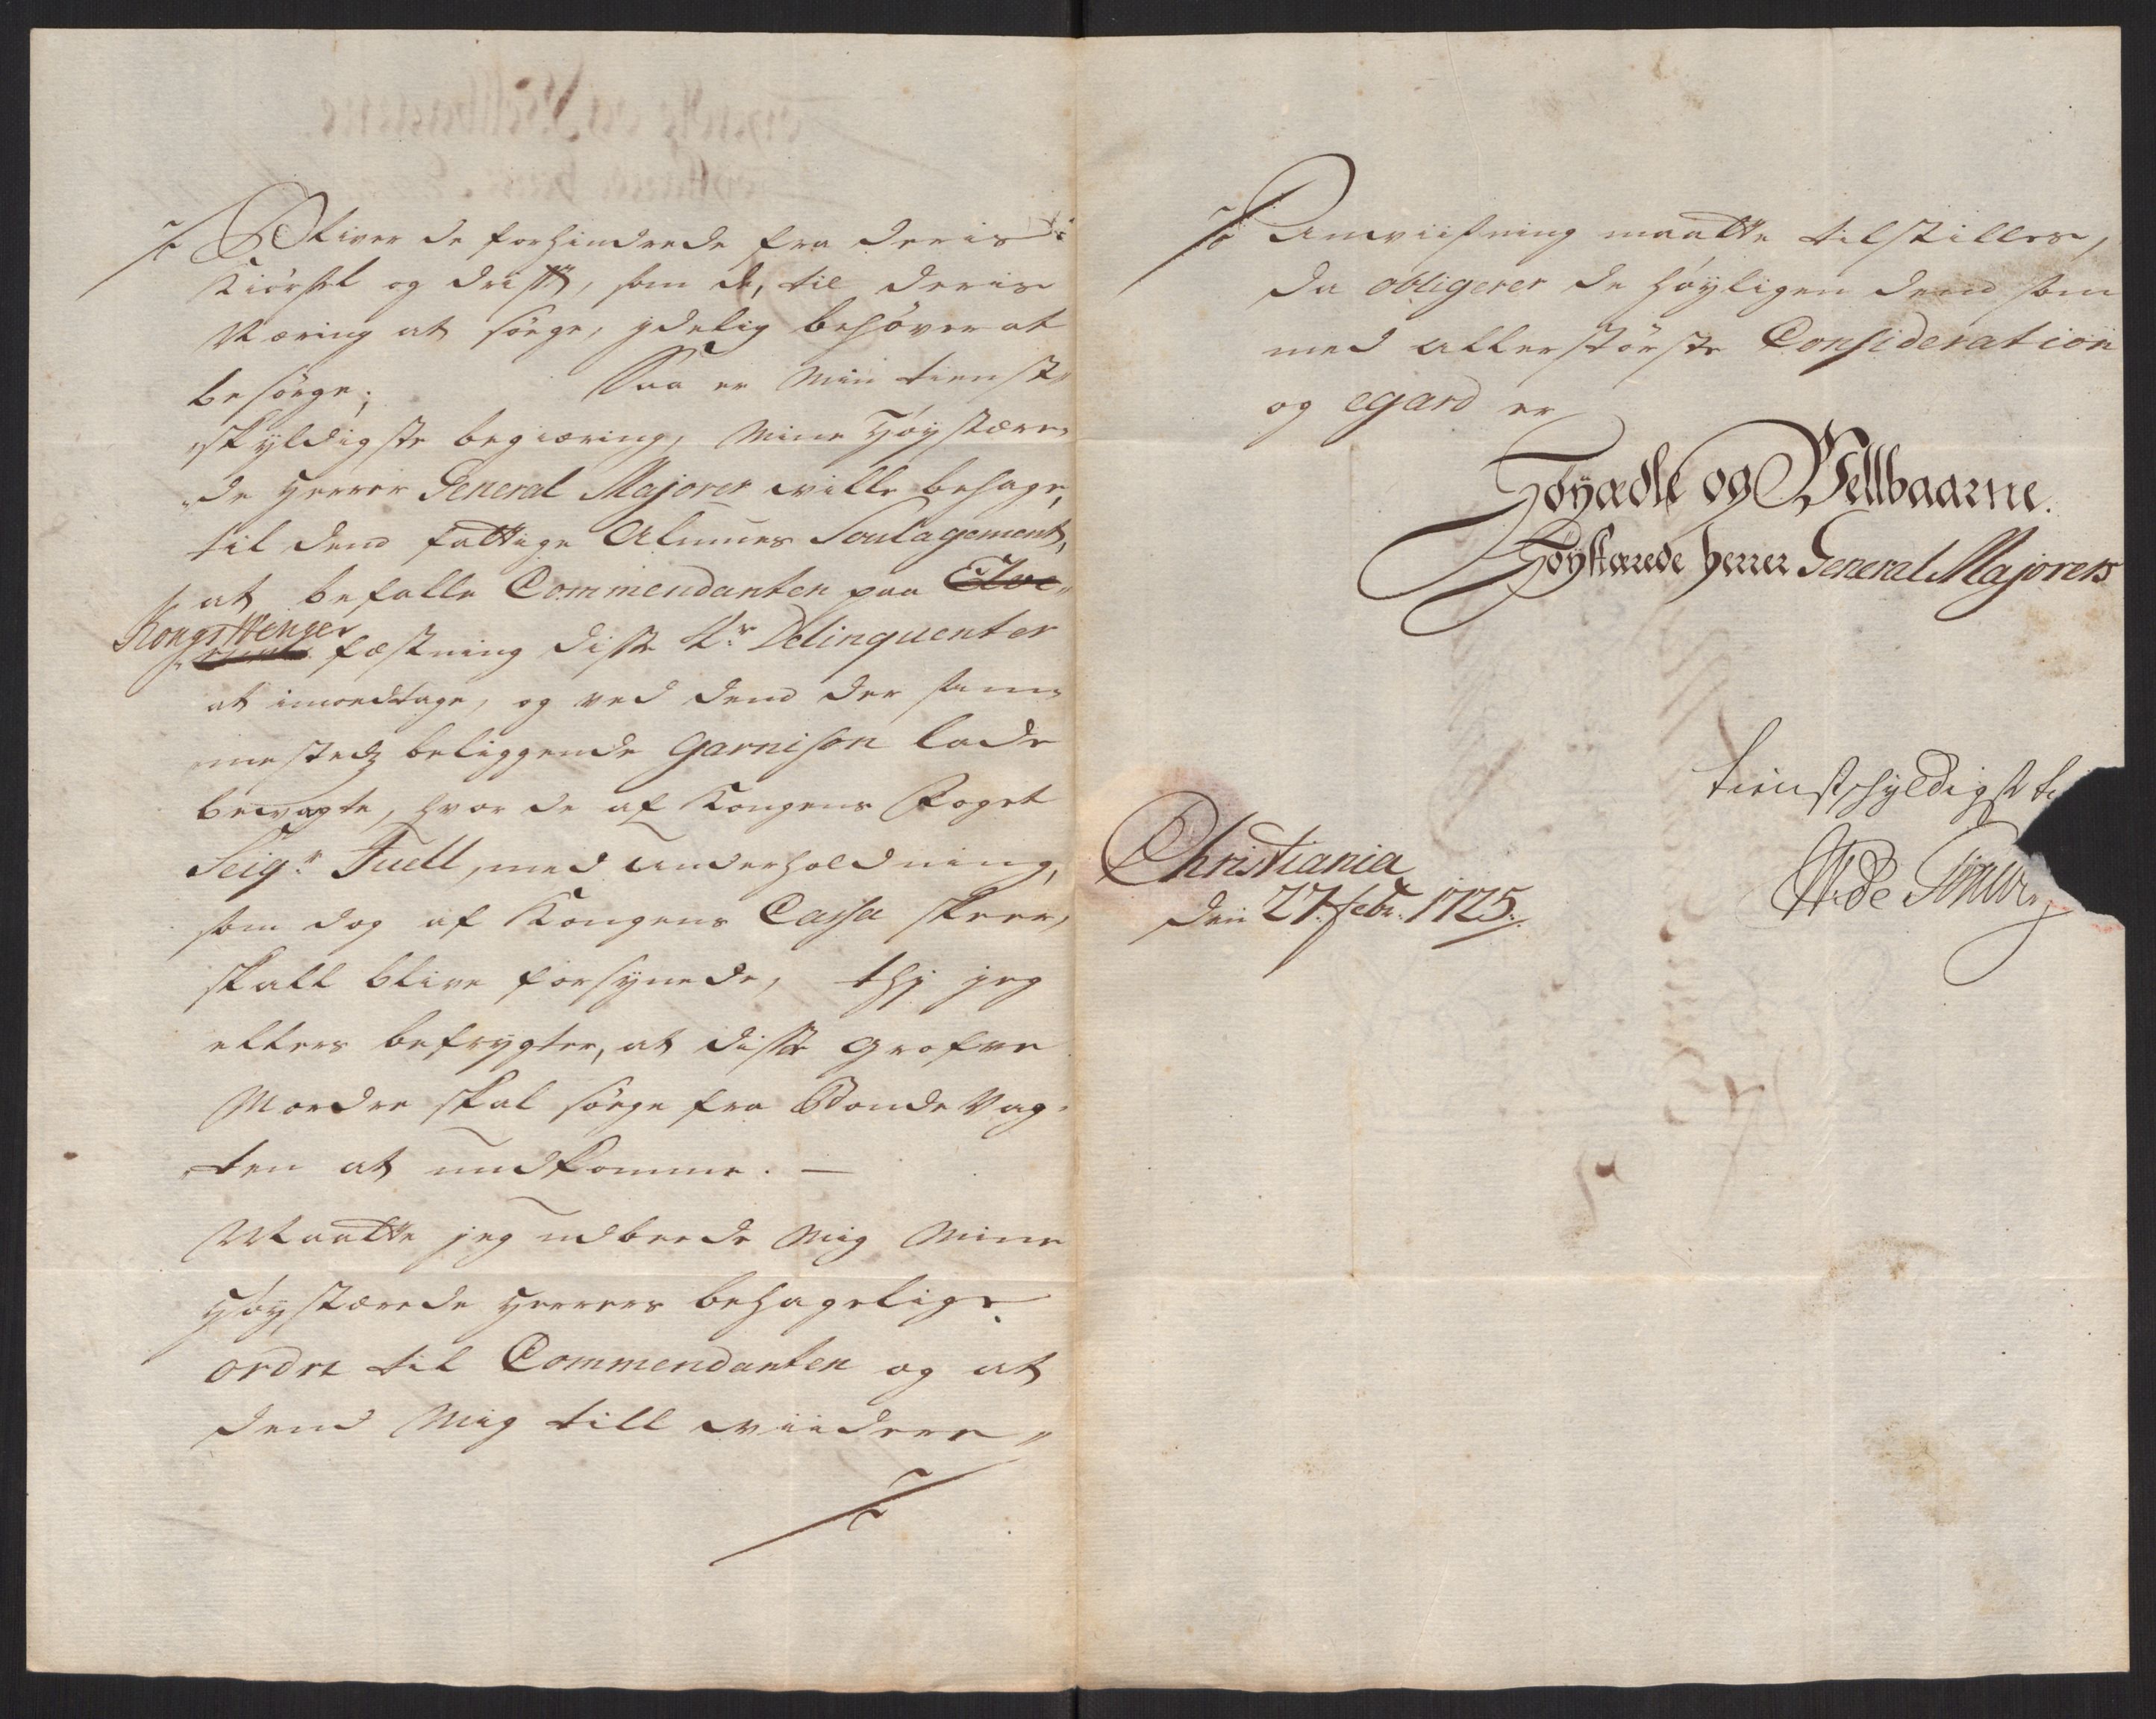 Bliver de forhindrede fra deris
Kiørsel og drifft, som de, til deris
Næring at søge, ydelig behøver at
besørge; Saa er Min tienst¬
skyldigste begiæring, Mine Høystære¬
de Herrer General Majorer wille behage,
til dend fattige Almues Soulagement,
at befalle Commendanten paa Elve¬
Kongs Wenger
fæstning disse 4r Delinquenter
at imoedtage, og ved dend der sam¬
mestedz beliggende Garnison lade
bewagte, hvor de af Kongens Foget
Seigr. Juell, med Underholdning,
som dog af Kongens Cassa skeer,
skall blive forsynede, thj jeg
ellers befrygter, at disse grofve
Mordre skal søge fra Bonde Vag¬
ten at undkomme. —
Maatte jeg udbeede Mig Mine
Høystærede Herrers behagelige
ordre til Commendanten og at
dend Mig till wiidere
Anwiisning maatte tilstilles,
da obligerer de høyligen dend som
med allerstørste Consideration
og egard er
Høyædle og Wellbaarne.
Høystærede herrer General Majorers
tienstschyldigst
Christiania
den 27. febr. 1725.